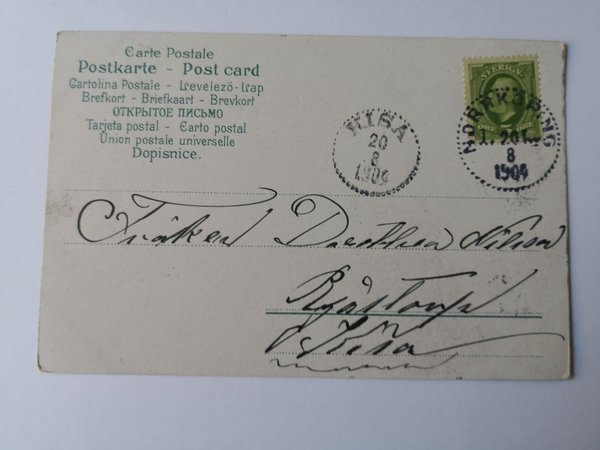 Carte Postale
Postkarte - Post card
Cartolina Postale - Levelező-Lap
Brefkort - Briefkaart - Brevkort
ОТКРЫТОЕ ПИСЬМО
Tarjeta postal - Carto postal
Union postale universelle
Dopisnice.
SVERIGE
KISA
20
8
1904
NORRKÖPING
1. 20
8
1904
Fröken Dorothea Nilson
Kisa